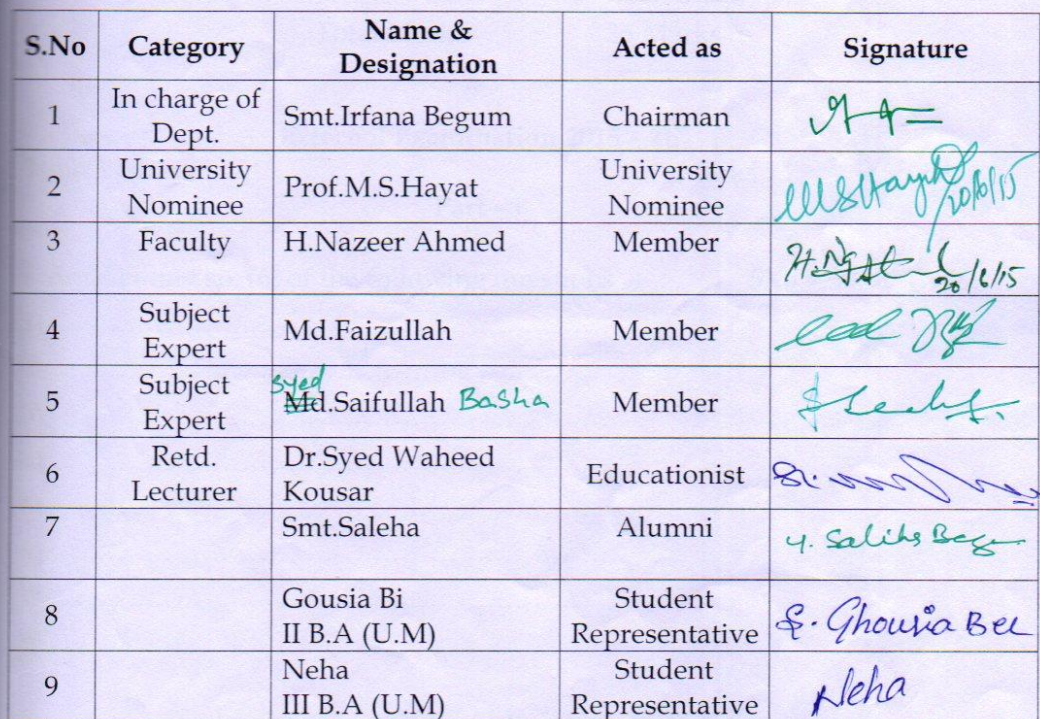 S.No Category Name & Designation Acted as Signature
1 In charge of Dept. Smt.Irfana Begum Chairman
2 University Nominee Prof.M.S.Hayat University Nominee MSHayath 20/6/15
3 Faculty H.Nazeer Ahmed Member 20/6/15
4 Subject Expert Md.Faizullah Member
5 Subject Expert syed Md.Saifullah Basha Member
6 Retd. Lecturer Dr.Syed Waheed Kousar Educationist
7 Smt.Saleha Alumni
8 Gousia Bi II B.A (U.M) Student Representative S. Ghousia Bee
9 Neha III B.A (U.M) Student Representative Neha